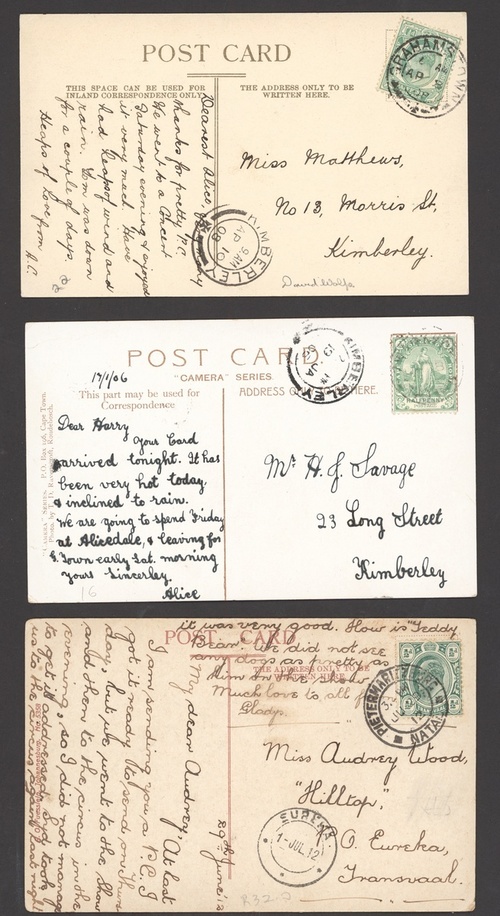 POST CARD
THIS SPACE CAN BE USED FOR
INLAND CORRESPONDENCE ONLY
THE ADDRESS ONLY TO BE
WRITTEN HERE.
Dearest Alice,
thanks for pretty P.C.
We went to a Concert
Saturday evening & enjoyed
it very much. Have
had heaps of wind and
rain. Dn was down
for a couple of days.
Heaps of love from A.C.
Miss Matthews,
No 13, Morris St,
Kimberley.
KIMBERLEY
9 AM
AP
08
David Wolfe
POST CARD
"CAMERA" SERIES.
17/1/06
This part may be used for
Correspondence
ADDRESS HERE.
"CAMERA" SERIES. P.O. Box Cape Town.
Dear Harry
Your Card
arrived tonight. It has
been very hot today
& inclined to rain.
We are going to spend Friday
at Alicedale, & leaving for
Town early Sat. morning
Yours Sincerley.
Alice
16
Mr H. J. Savage
23 Long Street
Kimberley
KIMBERLEY
HALFPENNY
POST CARD
THE ADDRESS ONLY TO BE
WRITTEN HERE.
29th June '12
My dear Audrey. At last
I am sending you a P.C. I
got it ready to send on Thurs
day, but we went to the Show
and then to the circus in the
evening, so I did not manage
to get it addressed. Syd took
us to the circus again last night
it was very good. How is "Teddy
Bear". We did not see
any dogs as pretty as
him on the Show
Much love to all
Gladys.
Miss Audrey Wood,
"Hilltop,"
P.O. Eureka,
Transvaal.
PIETERMARITZBURG
NATAL
EUREKA
1-JUL.12